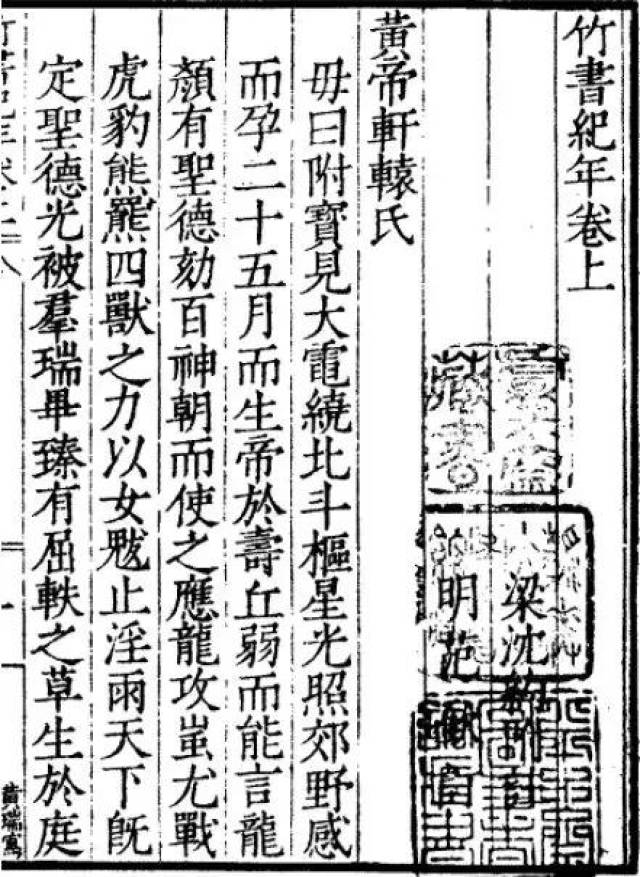 竹書紀年卷上
梁沈約附註
明范欽訂
黃帝軒轅氏
母曰附寶見大電繞北斗樞星光照郊野感
而孕二十五月而生帝於壽丘弱而能言龍
顏有聖德劾百神朝而使之應龍攻蚩尤戰
虎豹熊羆四獸之力以女魃止淫雨天下旣
定聖德光被羣瑞畢臻有屈軼之草生於庭
黃瑞寫